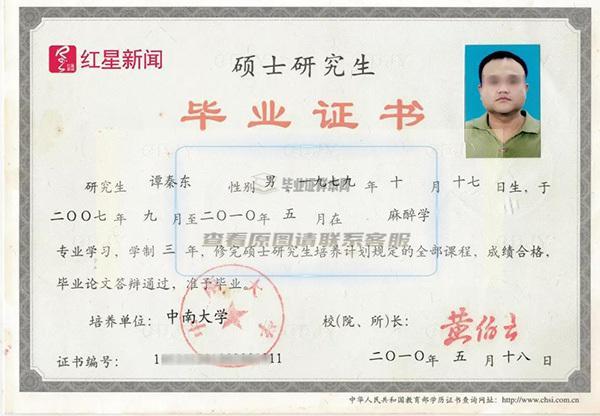 红星新闻
硕士研究生
毕业证书
毕业证样本网
研究生 谭秦东 性别 男 一九七九 年 十 月 十七 日生，于
二〇〇七 年 九 月至 二〇一〇 年 五 月在 麻醉学
查看原图请联系客服
专业学习，学制 三 年，修完硕士研究生培养计划规定的全部课程，成绩合格，
毕业论文答辩通过，准予毕业。
培养单位：中南大学 校(院、所)长：黄伯云
证书编号：1 11 二〇一〇 年 五 月 十八 日
中华人民共和国教育部学历证书查询网址：http://www.chsi.com.cn